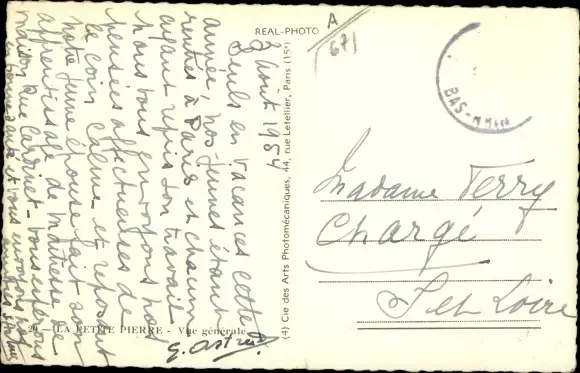 REAL-PHOTO
A
671
3 août 1954
Seuls en vacances cette
année, nos jeunes étant
rentrés à Paris et chacun
ayant repris son travail
nous vous envoyons nos
pensées affectueuses de
ce coin calme et reposant
notre jeune épouse fait son
apprentissage de maîtresse de
maison que Carnet - vous espérons
en bonne santé et vous envoyons nos
amitiés
(4) Cie des Arts Photomécaniques, 44, rue Letellier, Paris (15e)
BAS-
Madame Terry
Chargé
I et Loire
20 - LA PETITE PIERRE - Vue générale